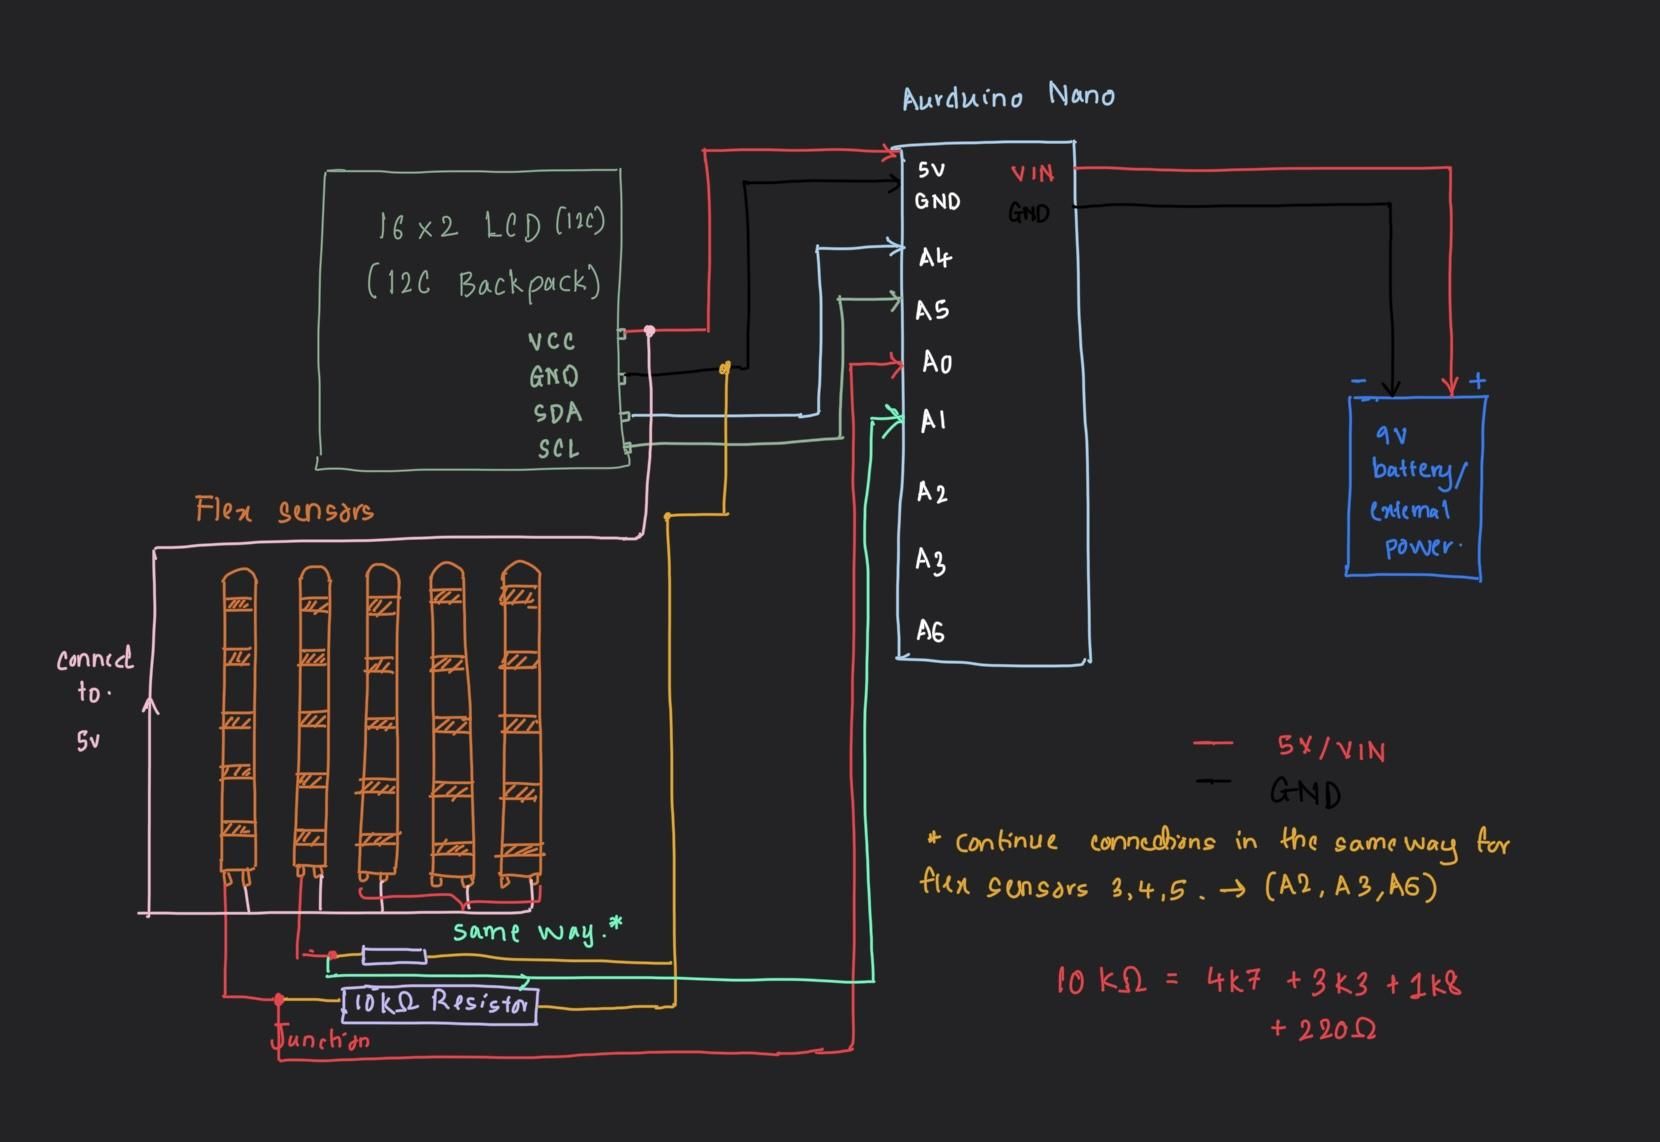 Aurduino Nano
16 x 2 LCD (I2C)
(I2C Backpack)
VCC
GND
SDA
SCL
5V
GND
A4
A5
A0
A1
A2
A3
A6
VIN
GND
- +
9V
battery/
external
power.
Flex sensors
connect
to.
5v
same way.*
10kΩ Resistor
Junction
5V/VIN
GND
* continue connections in the same way for
flex sensors 3,4,5. → (A2, A3, A6)
10 kΩ = 4k7 + 3k3 + 1k8
+ 220Ω